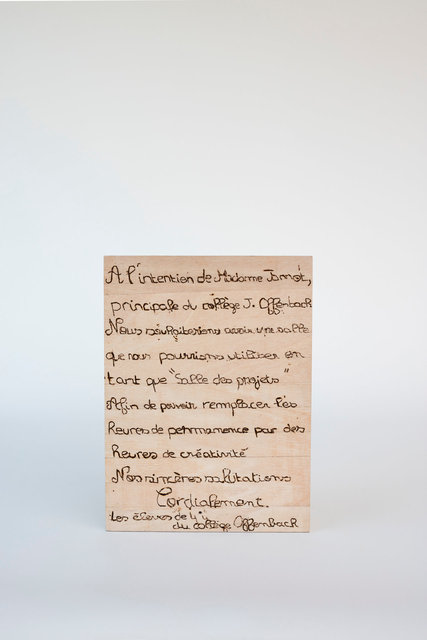 A l'intention de Madame Jamet,
principale du collège J. Offenbach
Nous souhaiterions avoir une salle
que nous pourrions utiliser en
tant que "Salle des projets"
Afin de pouvoir remplacer les
heures de permanence par des
heures de créativité
Nos sincères salutations
Cordialement.
Les élèves de 4°
du collège Offenbach